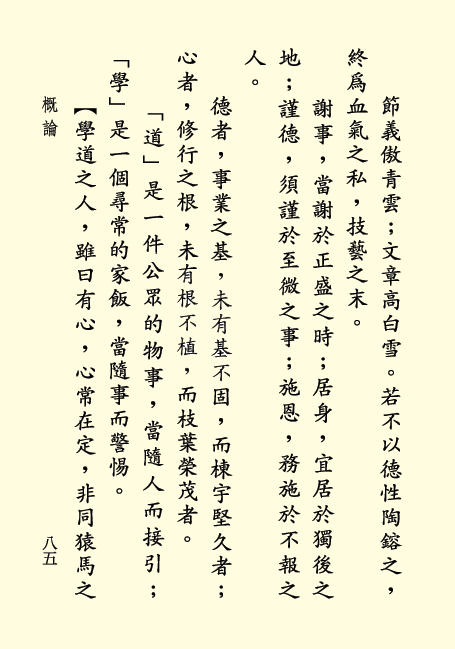 節義傲青雲；文章高白雪。若不以德性陶鎔之，
終為血氣之私，技藝之末。
謝事，當謝於正盛之時；居身，宜居於獨後之
地；謹德，須謹於至微之事；施恩，務施於不報之
人。
德者，事業之基，未有基不固，而棟宇堅久者；
心者，修行之根，未有根不植，而枝葉榮茂者。
「道」是一件公眾的物事，當隨人而接引；
「學」是一個尋常的家飯，當隨事而警惕。
【學道之人，雖曰有心，心常在定，非同猿馬之
概論
八五